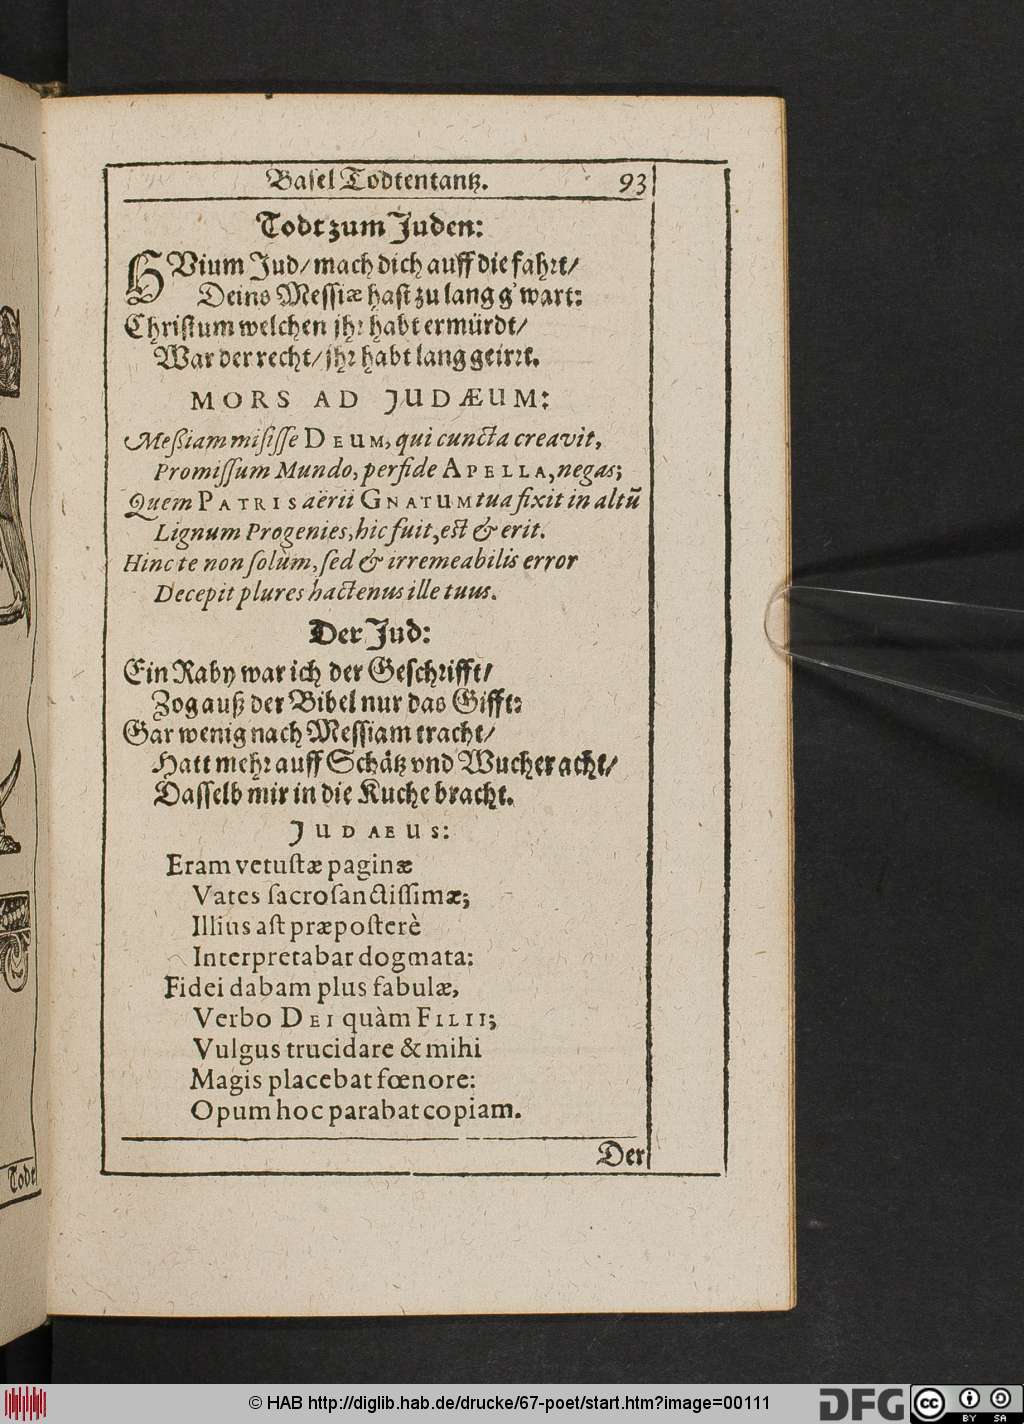 Basel Todtentantz. 93
Todt zum Juden:
HVium Jud/ mach dich auff die fahrt/
Deins Messiæ hast zu lang g'wart:
Christum welchen jhr habt ermürdt/
War der recht/ jhr habt lang geirrt.
MORS AD JUDÆUM:
Meßiam misisse DEUM, qui cuncta creavit,
Promissum Mundo, perfide APELLA, negas;
Quem PATRIS aërii GNATUM tua fixit in altū
Lignum Progenies, hic fuit, est & erit.
Hinc te non solùm, sed & irremeabilis error
Decepit plures hactenus ille tuus.
Der Jud:
Ein Raby war ich der Geschrifft/
Zog auß der Bibel nur das Gifft:
Gar wenig nach Messiam tracht/
Hatt mehr auff Schätz vnd Wucher acht/
Dasselb mir in die Kuche bracht.
JUDAEUS:
Eram vetustæ paginæ
Vates sacrosanctissimæ;
Illius ast præposterè
Interpretabar dogmata:
Fidei dabam plus fabulæ,
Verbo DEI quàm FILII;
Vulgus trucidare & mihi
Magis placebat fœnore:
Opum hoc parabat copiam.
Der
Todt
© HAB http://diglib.hab.de/drucke/67-poet/start.htm?image=00111
DFG
cc
BY SA